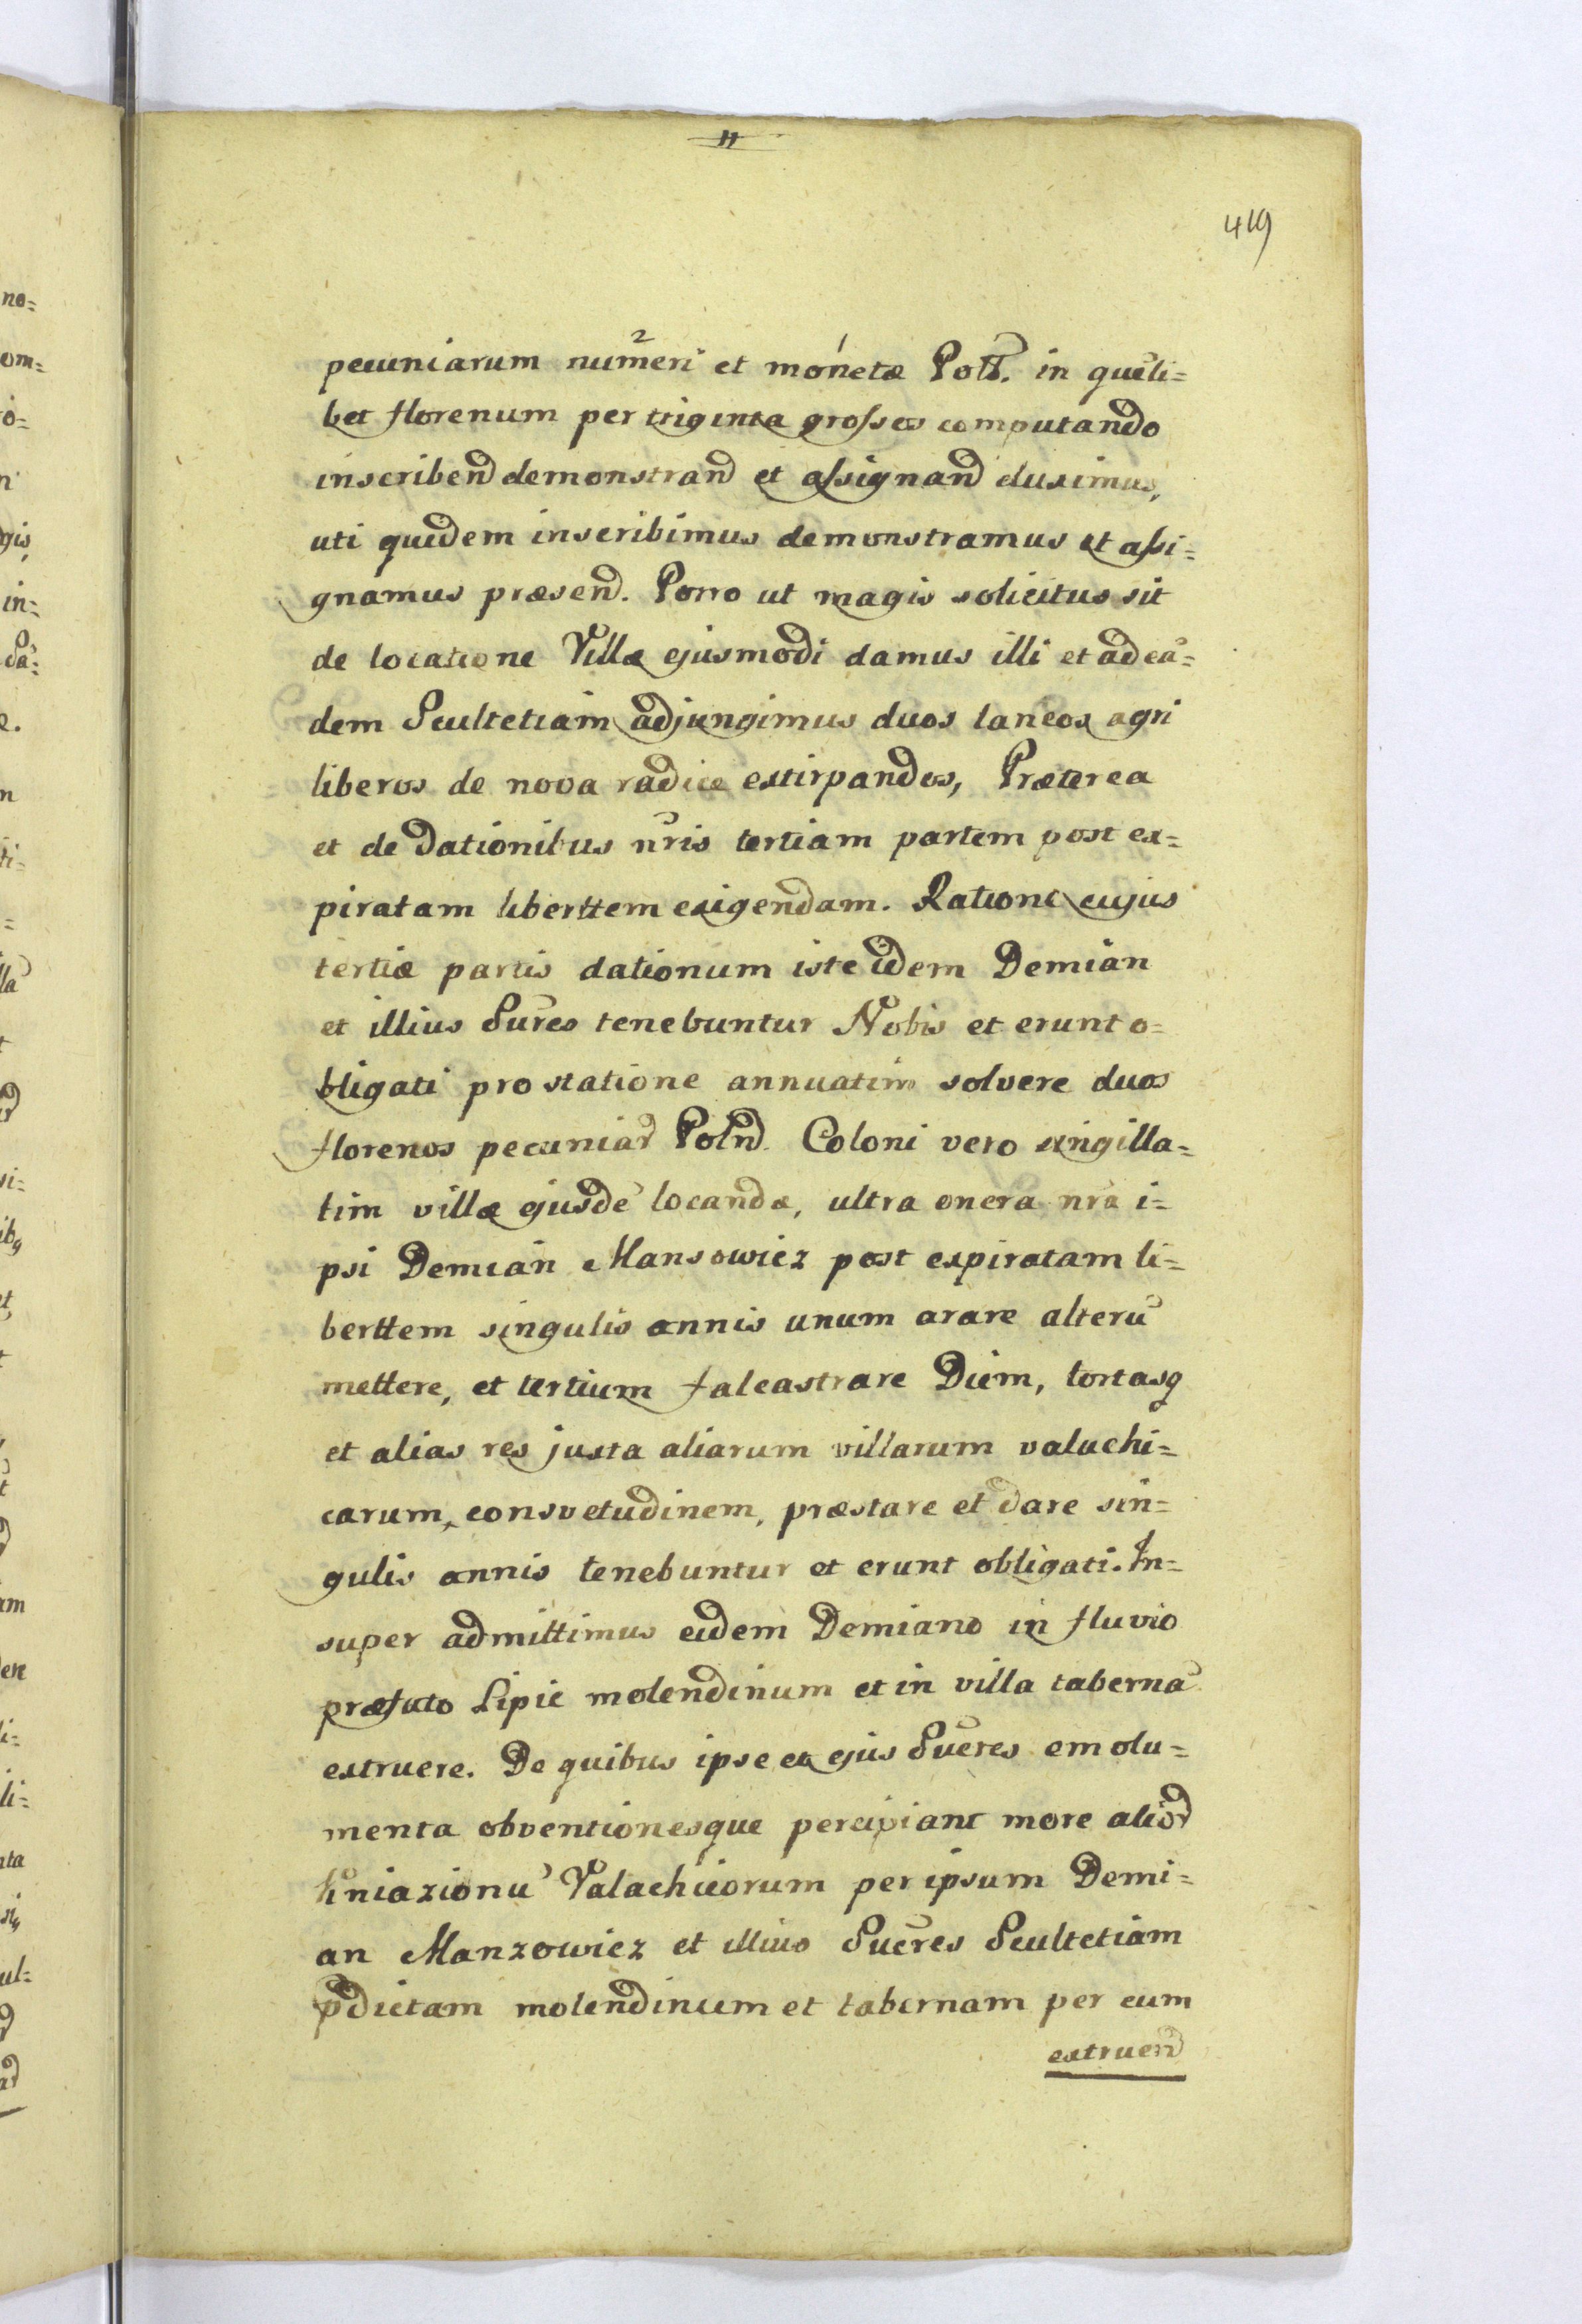 419
pecuniarum numeri et monetæ Poll. in queli=
bet florenum per triginta grosses computando
inscribend demonstrand et assignand duximus,
uti quidem inscribimus demonstramus et assi=
gnamus præsend. Porro ut magis solicitus sit
de locatione Villæ ejusmodi damus illi et ad eā=
dem Scultetiam adjungimus duos laneos agri
liberos de nova radice extirpandos, Præterea
et de dationibus nris tertiam partem post ex=
piratam liberttem exigendam. Ratione cujus
tertiæ partis dationum iste idem Demian
et illius Sures tenebuntur Nobis et erunt o=
bligati pro statione annuatim solvere duos
florenos pecuniar Polnd. Coloni vero singilla=
tim villæ ejusdē locandæ, ultra onera nra i=
psi Demian Mansowicz post expiratam li=
berttem singulis annis unum arare alterū
mettere, et tertium falcastrare Diem, tortasq
et alias res juxta aliarum villarum valachi=
carum, consvetudinem, præstare et dare sin=
gulis annis tenebuntur et erunt obligati. In=
super admittimus eidem Demiano in fluvio
præfato Lipie molendinum et in villa tabernā
extruere. De quibus ipse et ejus Sucres emolu=
menta obventionesque percipiant more alior
kniazionū Valachicorum per ipsum Demi=
an Manzowicz et illius Sucres Scultetiam
pdictam molendinum et tabernam per eum
extruend